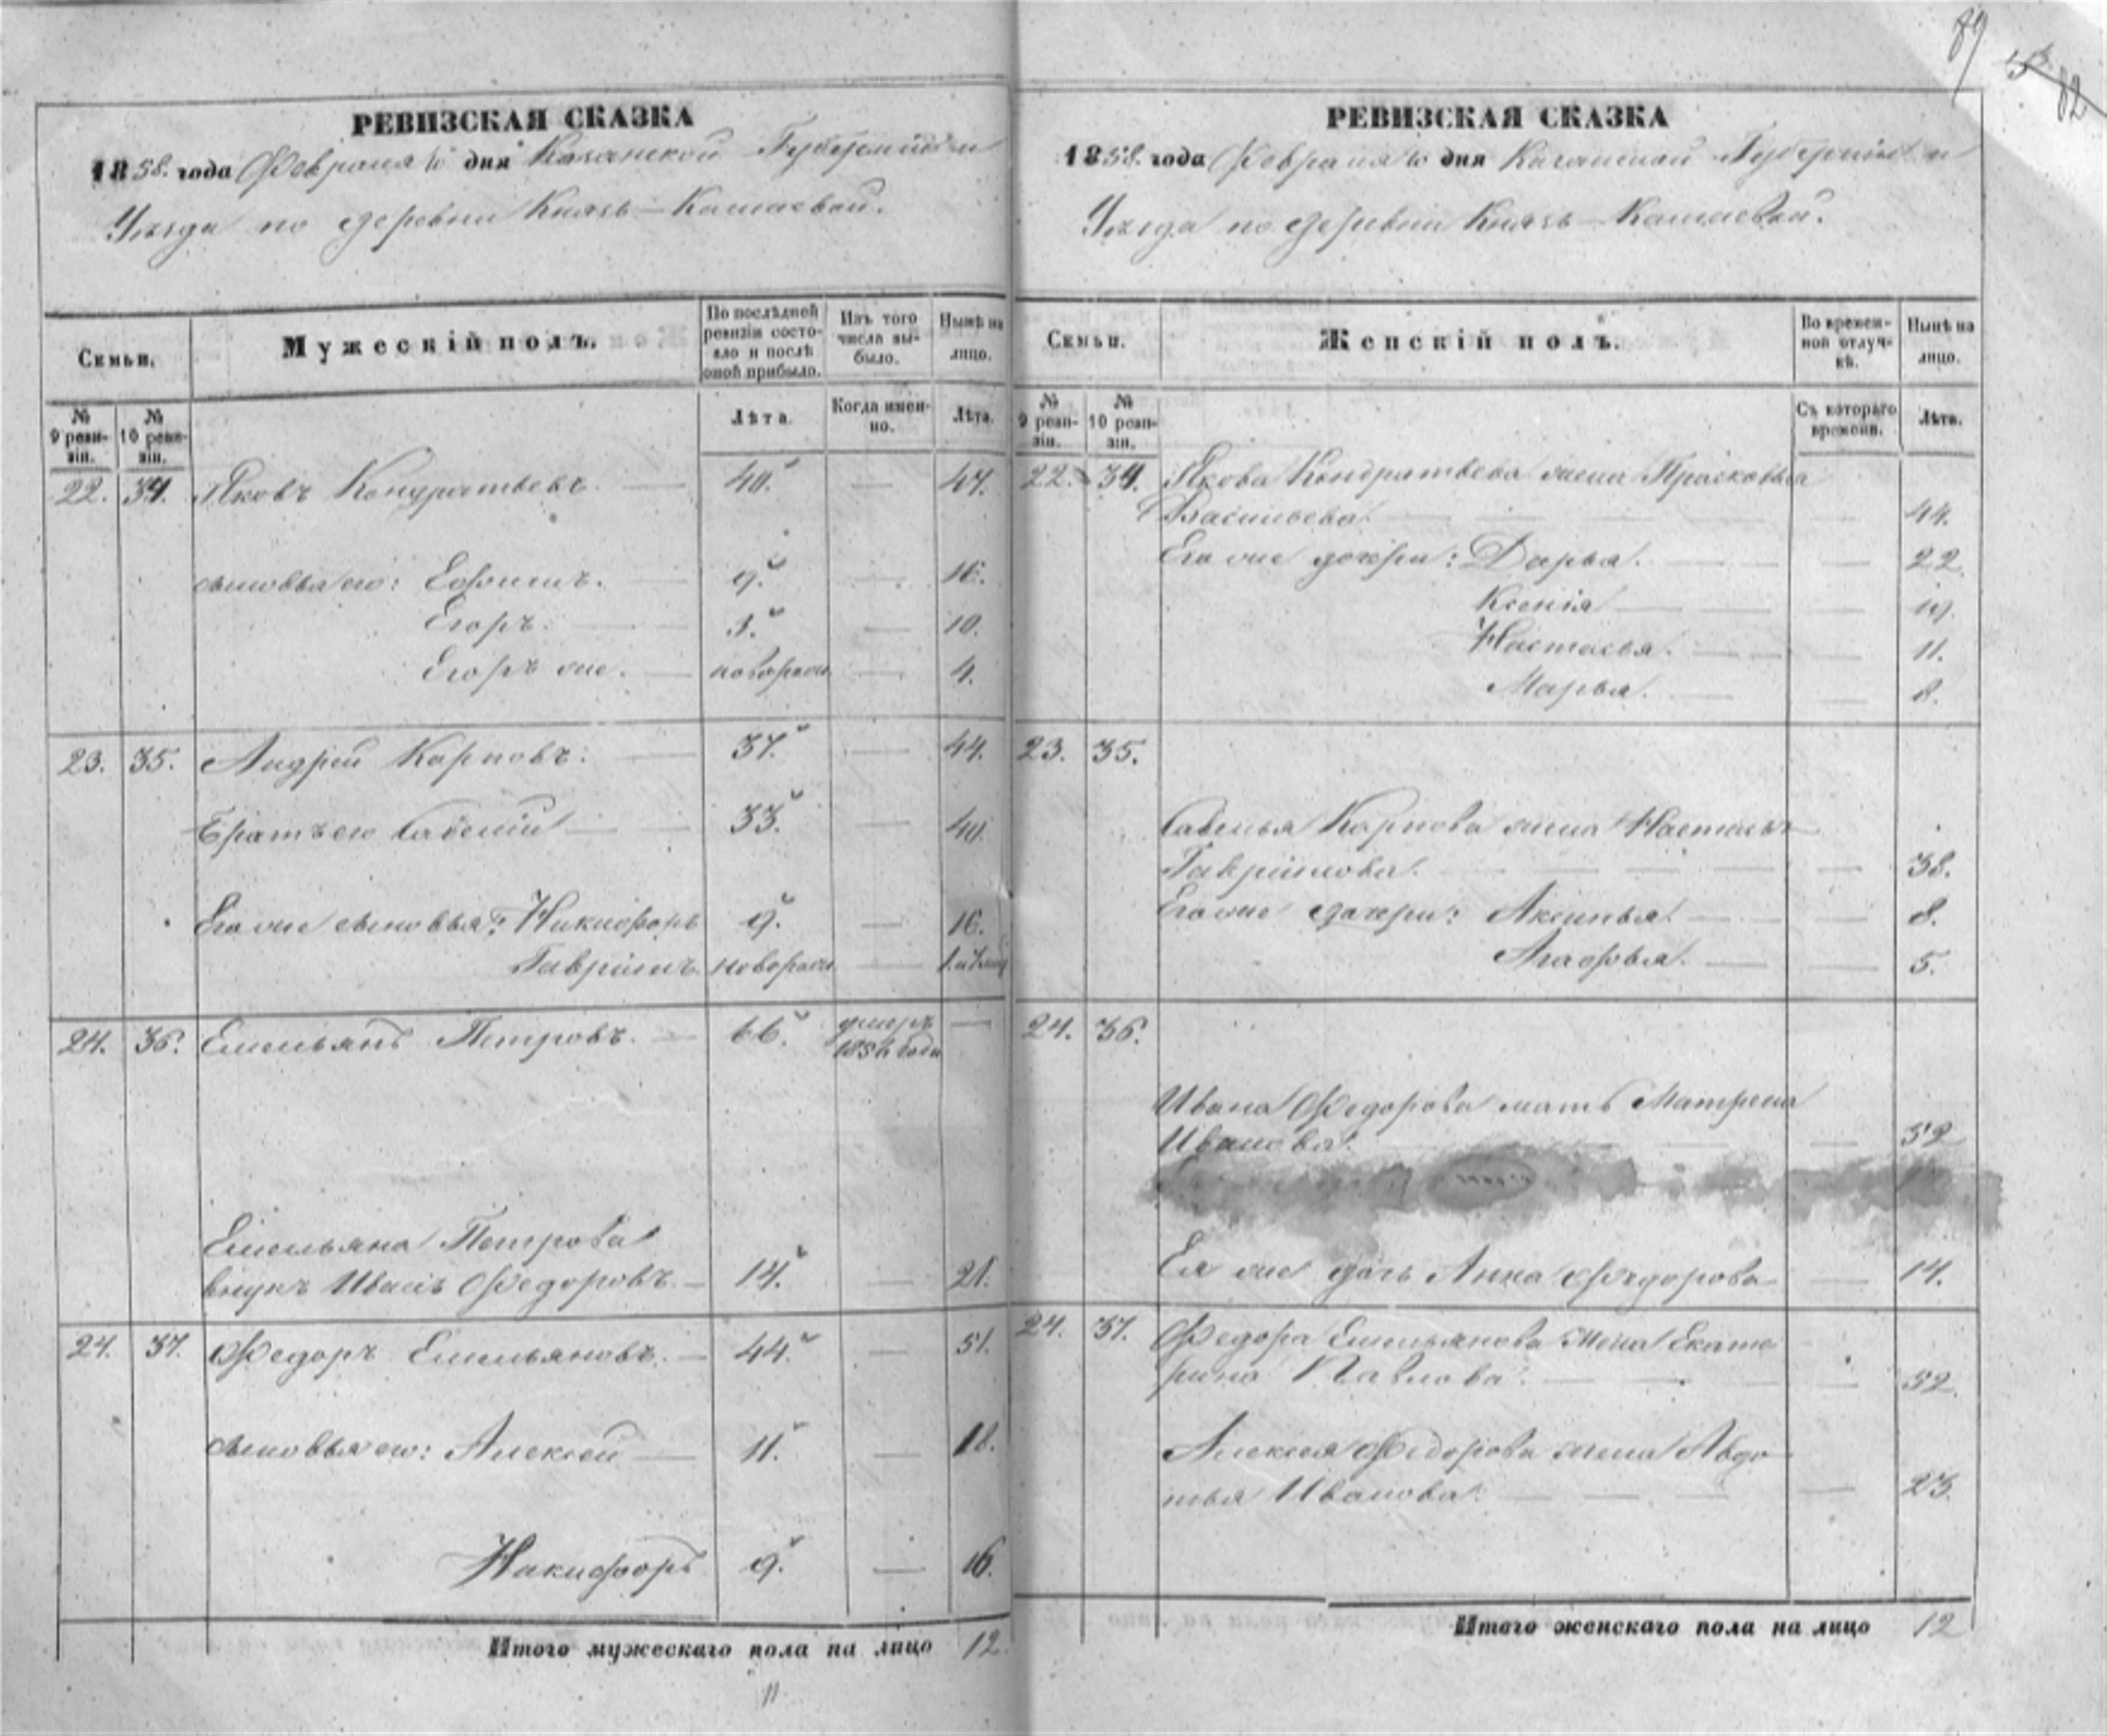 89
82
РЕВИЗСКАЯ СКАЗКА
1858. года Февраля 10 дня Казанской Губерніи и
Уезда по деревни Князь-Камаевой.
Семьи.
Мужескій полъ.
По послѣдней ревизіи состояло и послѣ оной прибыло.
Изъ того числа выбыло.
Нынѣ на лицо.
№ 9 ревизіи.
№ 10 ревизіи.
Лѣта.
Когда именно.
Лѣта.
22. 34. Яковъ Кондратьевъ. — 40. — 47.
сыновья его: Ефимъ. — 9. — 16.
Егоръ. — 3. — 10.
Егоръ же. — новорож. — 4.
23. 35. Андрей Карповъ. — 37. — 44.
Братъ его Савелій — 33. — 40.
Его же сыновья: Никифоръ 9. — 16.
Гавріилъ новорож. —
24. 36. Емельянъ Петровъ. — 66. умеръ —
Емельяна Петрова
внукъ Иванъ Федоровъ. — 14. — 21.
24. 37. Федоръ Емельяновъ. — 44. — 51.
сыновья его: Алексей — 11. — 18.
Никифоръ 9. — 16.
Итого мужескаго пола на лицо 12.
11
РЕВИЗСКАЯ СКАЗКА
1858. года Февраля 10 дня Казанской Губерніи и
Уезда по деревни Князь-Камаевой.
Семьи.
Женскій полъ.
Во временной отлучкѣ.
Нынѣ на лицо.
№ 9 ревизіи.
№ 10 ревизіи.
Съ котораго времени.
Лѣта.
22. 34. Якова Кондратьева жена Прасковья
Васильева. — — 44.
Его же дочери: Дарья. — — 22.
Ксенія — — 19.
Настасья. — — 11.
Марья. — — 8.
23. 35.
Савелья Карпова жена Настасья
Гаврилова. — — 38.
Его же дочери: Аксинья. — — 8.
Агафья. — — 5.
24. 36.
Ивана Федорова мать Матрена
Иванова. — — 52
Ея же дочь Анна Федорова — 14.
24. 37. Федора Емельянова жена Екате
рина Павлова. — — 52.
Алексея Федорова жена Авдо
тья Иванова. — — 23.
Итого женскаго пола на лицо 12